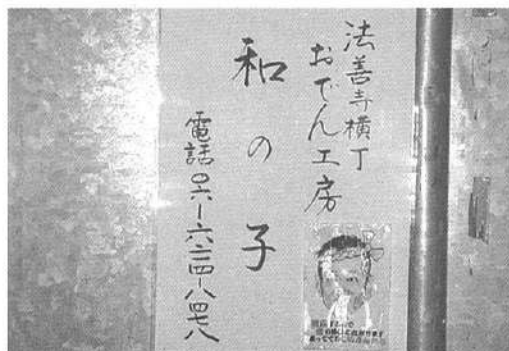 法善寺横丁
おでん工房
和の子
電話〇六ー六二一四ー八四七八